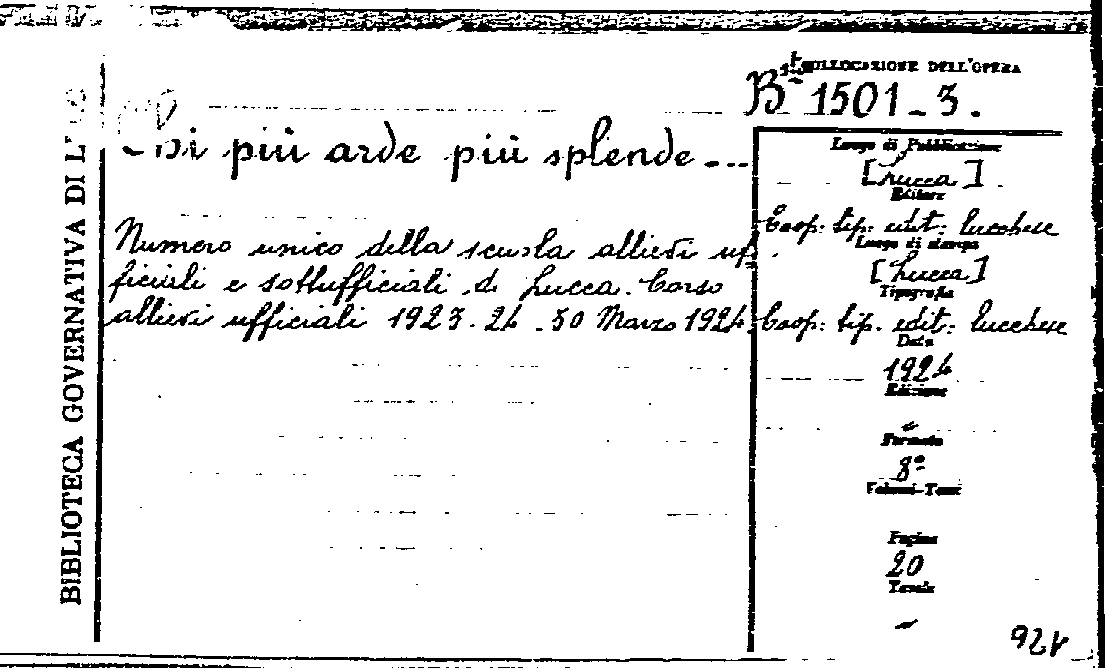 COLLOCAZIONE DELL'OPERA
B 1501-3.
BIBLIOTECA GOVERNATIVA DI
più arde più splende ...
Numero unico della scuola allievi uf
ficiali e sottufficiali di Lucca. Corso
allievi ufficiali 1923-24 - 30 Marzo 1924.
Luogo di Pubblicazione
[Lucca]
Editore
Coop: tip. edit: lucchese
Luogo di stampa
[Lucca]
Tipografia
Coop: tip. edit: lucchese
Data
1924
Edizione
Formato
8°
Volumi-Tomi
Pagine
20
Tavole